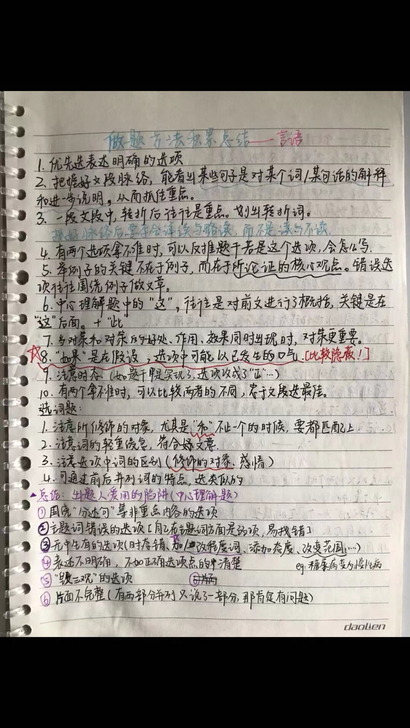 做题方法积累总结——言语
1. 优先选表述明确的选项
2. 把握好文段脉络，能看出某些句子是对某个词/某句话的解释
和进一步说明。从而抓住重点。
3. 一段文段中，转折后往往是重点。划出转折词。
4. 有两个选项拿不准时，可以反推题干若是这个选项，会怎么写.
5. 举例子的关键不在于例子，而在于所论证的核心观点。错误选
项往往围绕例子做文章.
6. 中心理解题中的"这"，往往是对前文进行了概括，关键是在
"这"后面。+"此
7. 当对策和对策的好处、作用、效果同时出现时，对策更重要.
8. "如果"是在假设，选项中可能以已发生的口气.[比较隐蔽！]
9. 注意时态
10. 有两个拿不准时，可以比较两者的不同，若于文段选最佳.
选词题：
1. 注意所修饰的对象，尤其是"和"不止一个的时候，要都匹配上.
2. 注意词的轻重缓急，符合文意.
3. 注意选项中词的区别（修饰的对象、感情）
4. 可通过前后并列词的特点，选类似的
▲总结：出题人爱用的陷阱（中心理解题）
① 围绕 等非重点内容的选项
② 主题词错误的选项
③ 无中生有的选项 改程度词、添加态度、改变范围…）
④ 表述不明确，不如正确选项 清楚
⑤ 的选项
⑥ 片面不完整（有两部分并列只说了一部分，那肯定有问题）
daolien